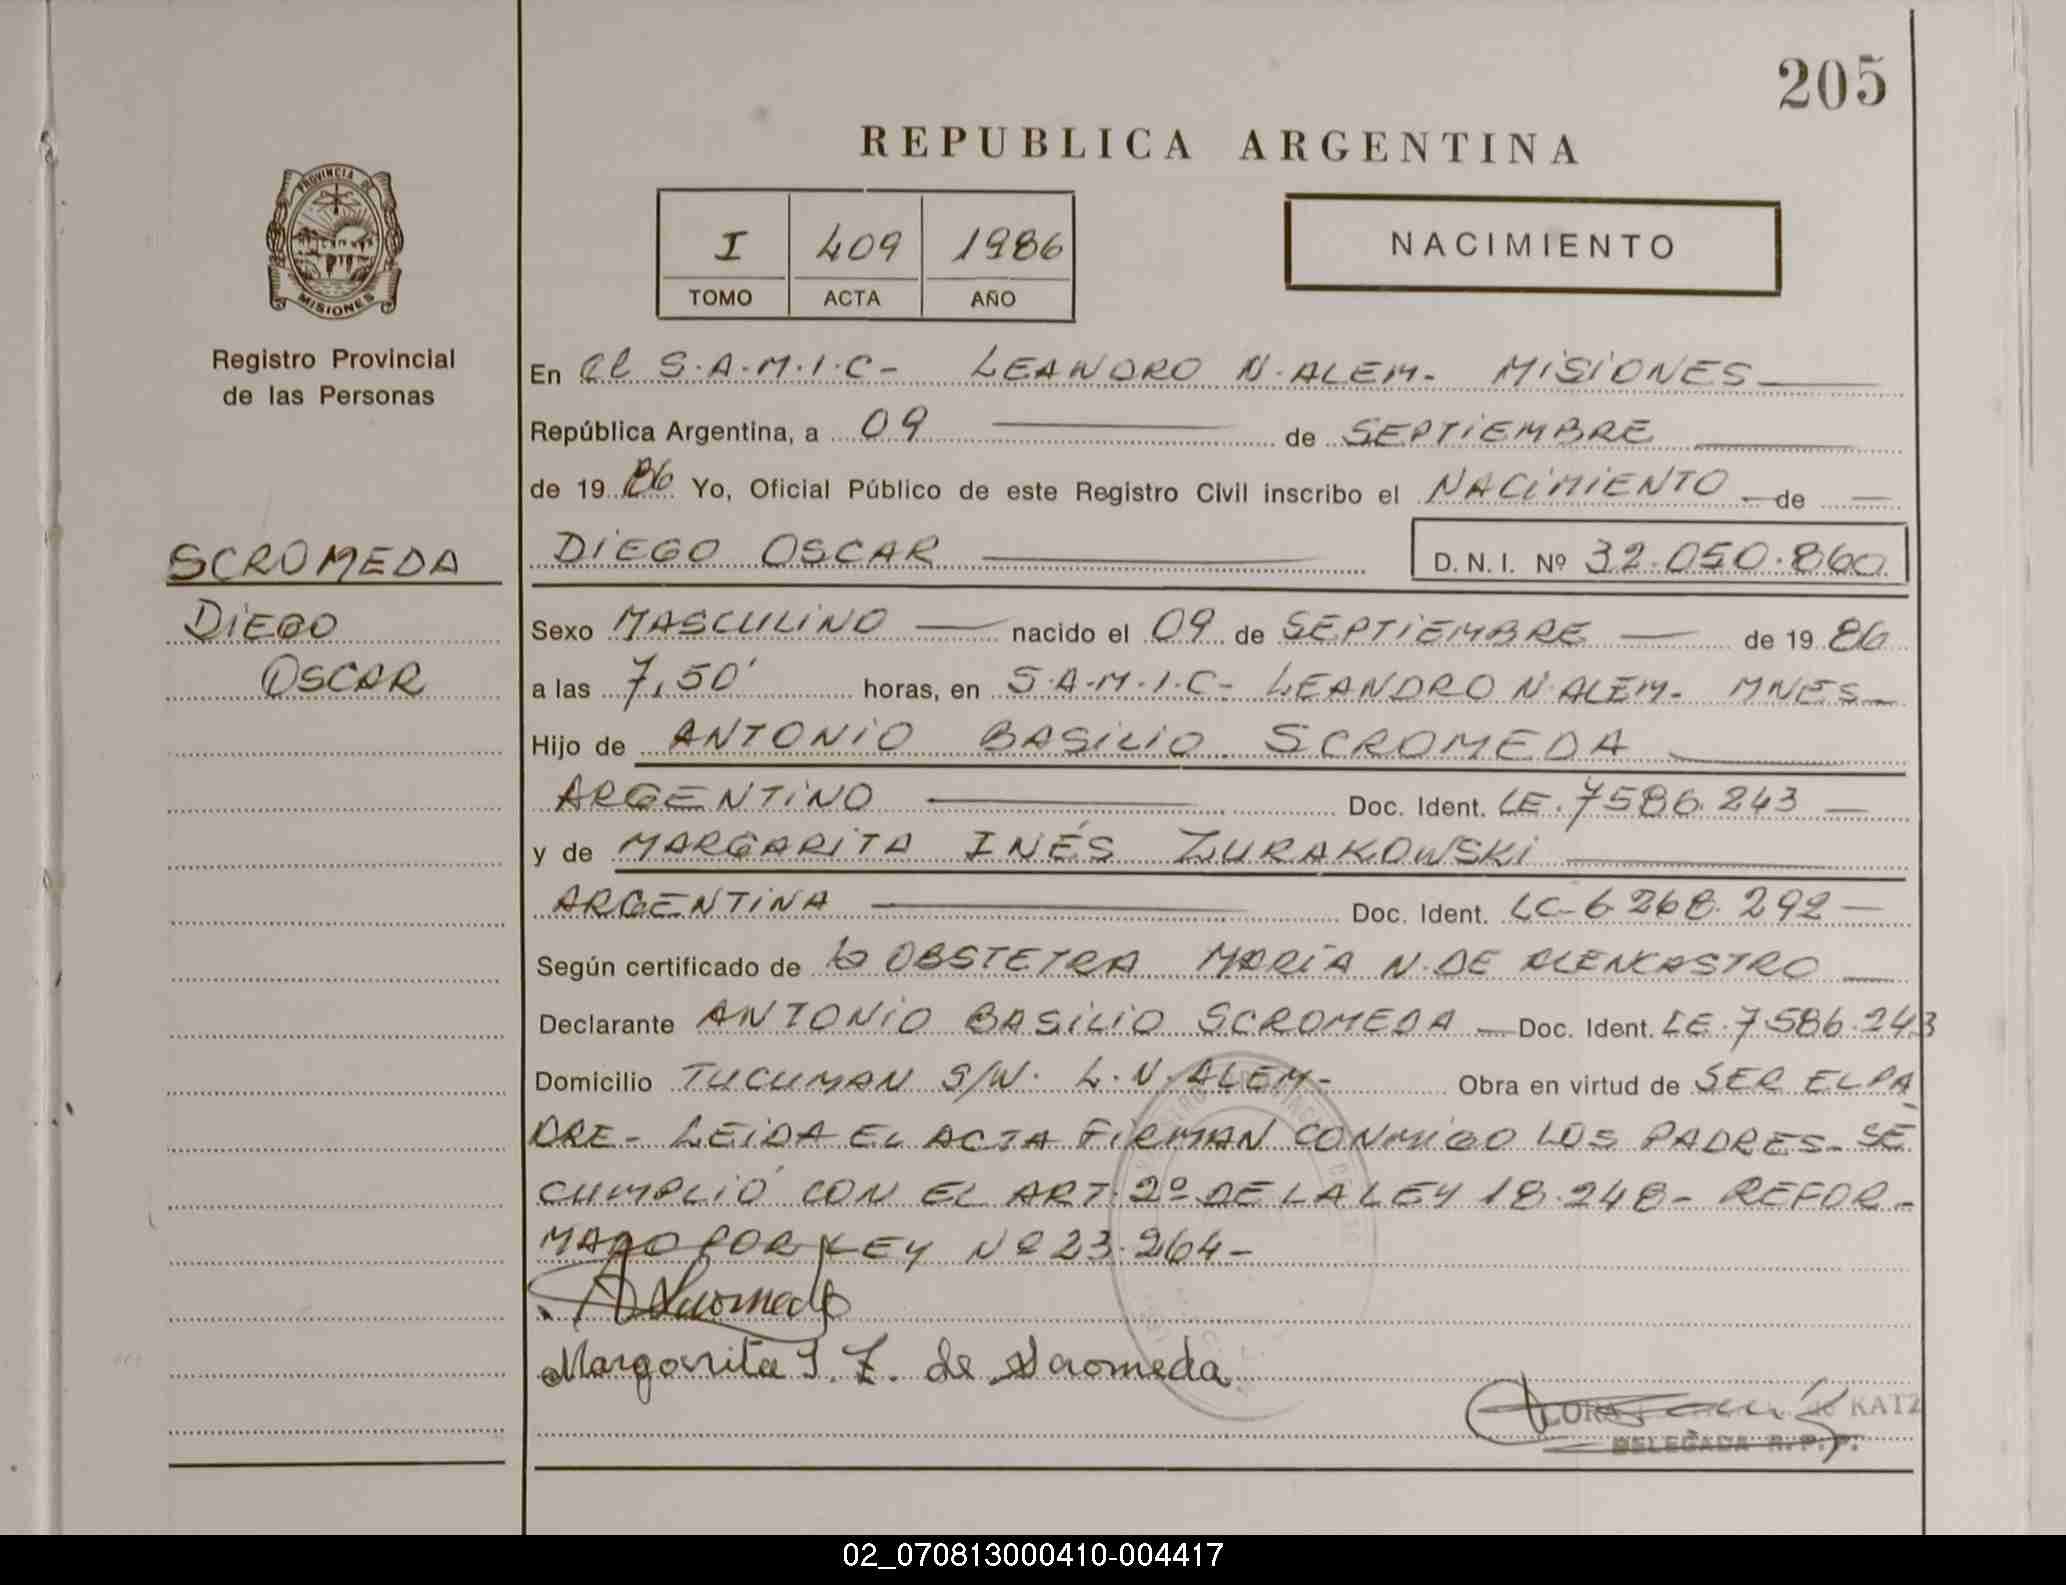 205
REPUBLICA ARGENTINA
I 409 1986
TOMO ACTA AÑO
NACIMIENTO
PROVINCIA DE
MISIONES
Registro Provincial
de las Personas
En el S.A.M.I.C- LEANDRO N. ALEM- MISIONES
República Argentina, a 09 de SEPTIEMBRE
de 1986 Yo, Oficial Público de este Registro Civil inscribo el NACIMIENTO de
DIEGO OSCAR D. N. I. Nº 32.050.860
SCROMEDA
DIEGO
OSCAR
Sexo MASCULINO nacido el 09 de SEPTIEMBRE de 1986
a las 7,50' horas, en S.A.M.I.C- LEANDRO N. ALEM- MNES
Hijo de ANTONIO BASILIO SCROMEDA
ARGENTINO Doc. Ident. LE. 7586.243
y de MARGARITA INÉS ZURAKOWSKI
ARGENTINA Doc. Ident. LC-6268.292
Según certificado de la OBSTETRA MARÍA N. DE ALENCASTRO
Declarante ANTONIO BASILIO SCROMEDA Doc. Ident. LE.7586.243
Domicilio TUCUMAN S/N. L.N.ALEM- Obra en virtud de SER EL PA
DRE- LEIDA EL ACTA FIRMAN CONMIGO LOS PADRES- SE
CUMPLIÓ CON EL ART. 2º DE LA LEY 18.248- REFOR-
MADO POR LEY Nº 23.264-
A Scromeda
Margarita I. Z. de Scromeda
KATZ
DELEGADA R.P.P.
02_070813000410-004417